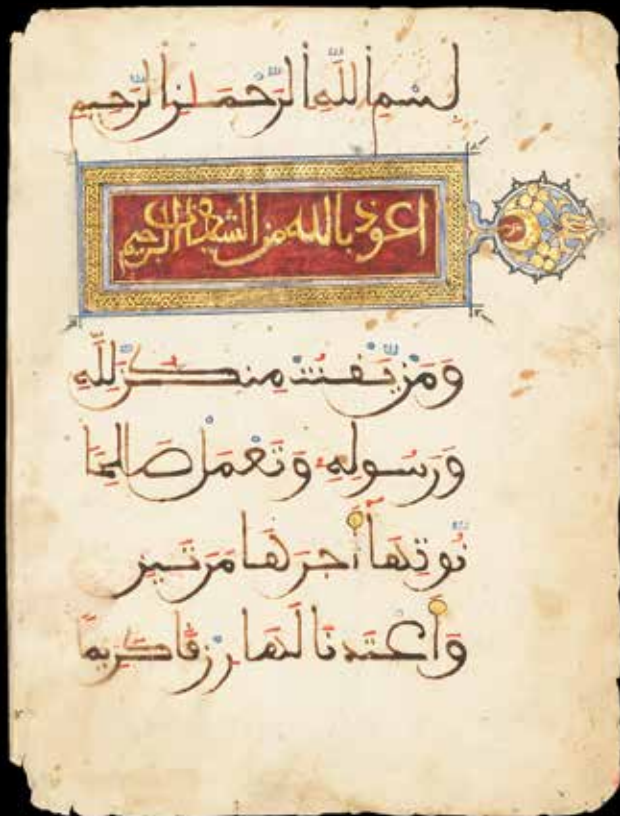 بِسْمِ اللَّهِ الرَّحْمَٰنِ الرَّحِيمِ
اعوذ بالله من الشيطان الرجيم
وَمَن يَقْنُتْ مِنكُنَّ لِلَّهِ
وَرَسُولِهِ وَتَعْمَلْ صَالِحًا
نُوتِهَا أَجْرَهَا مَرَّتَيْنِ
وَأَعْتَدْنَا لَهَا رِزْقًا كَرِيمًا